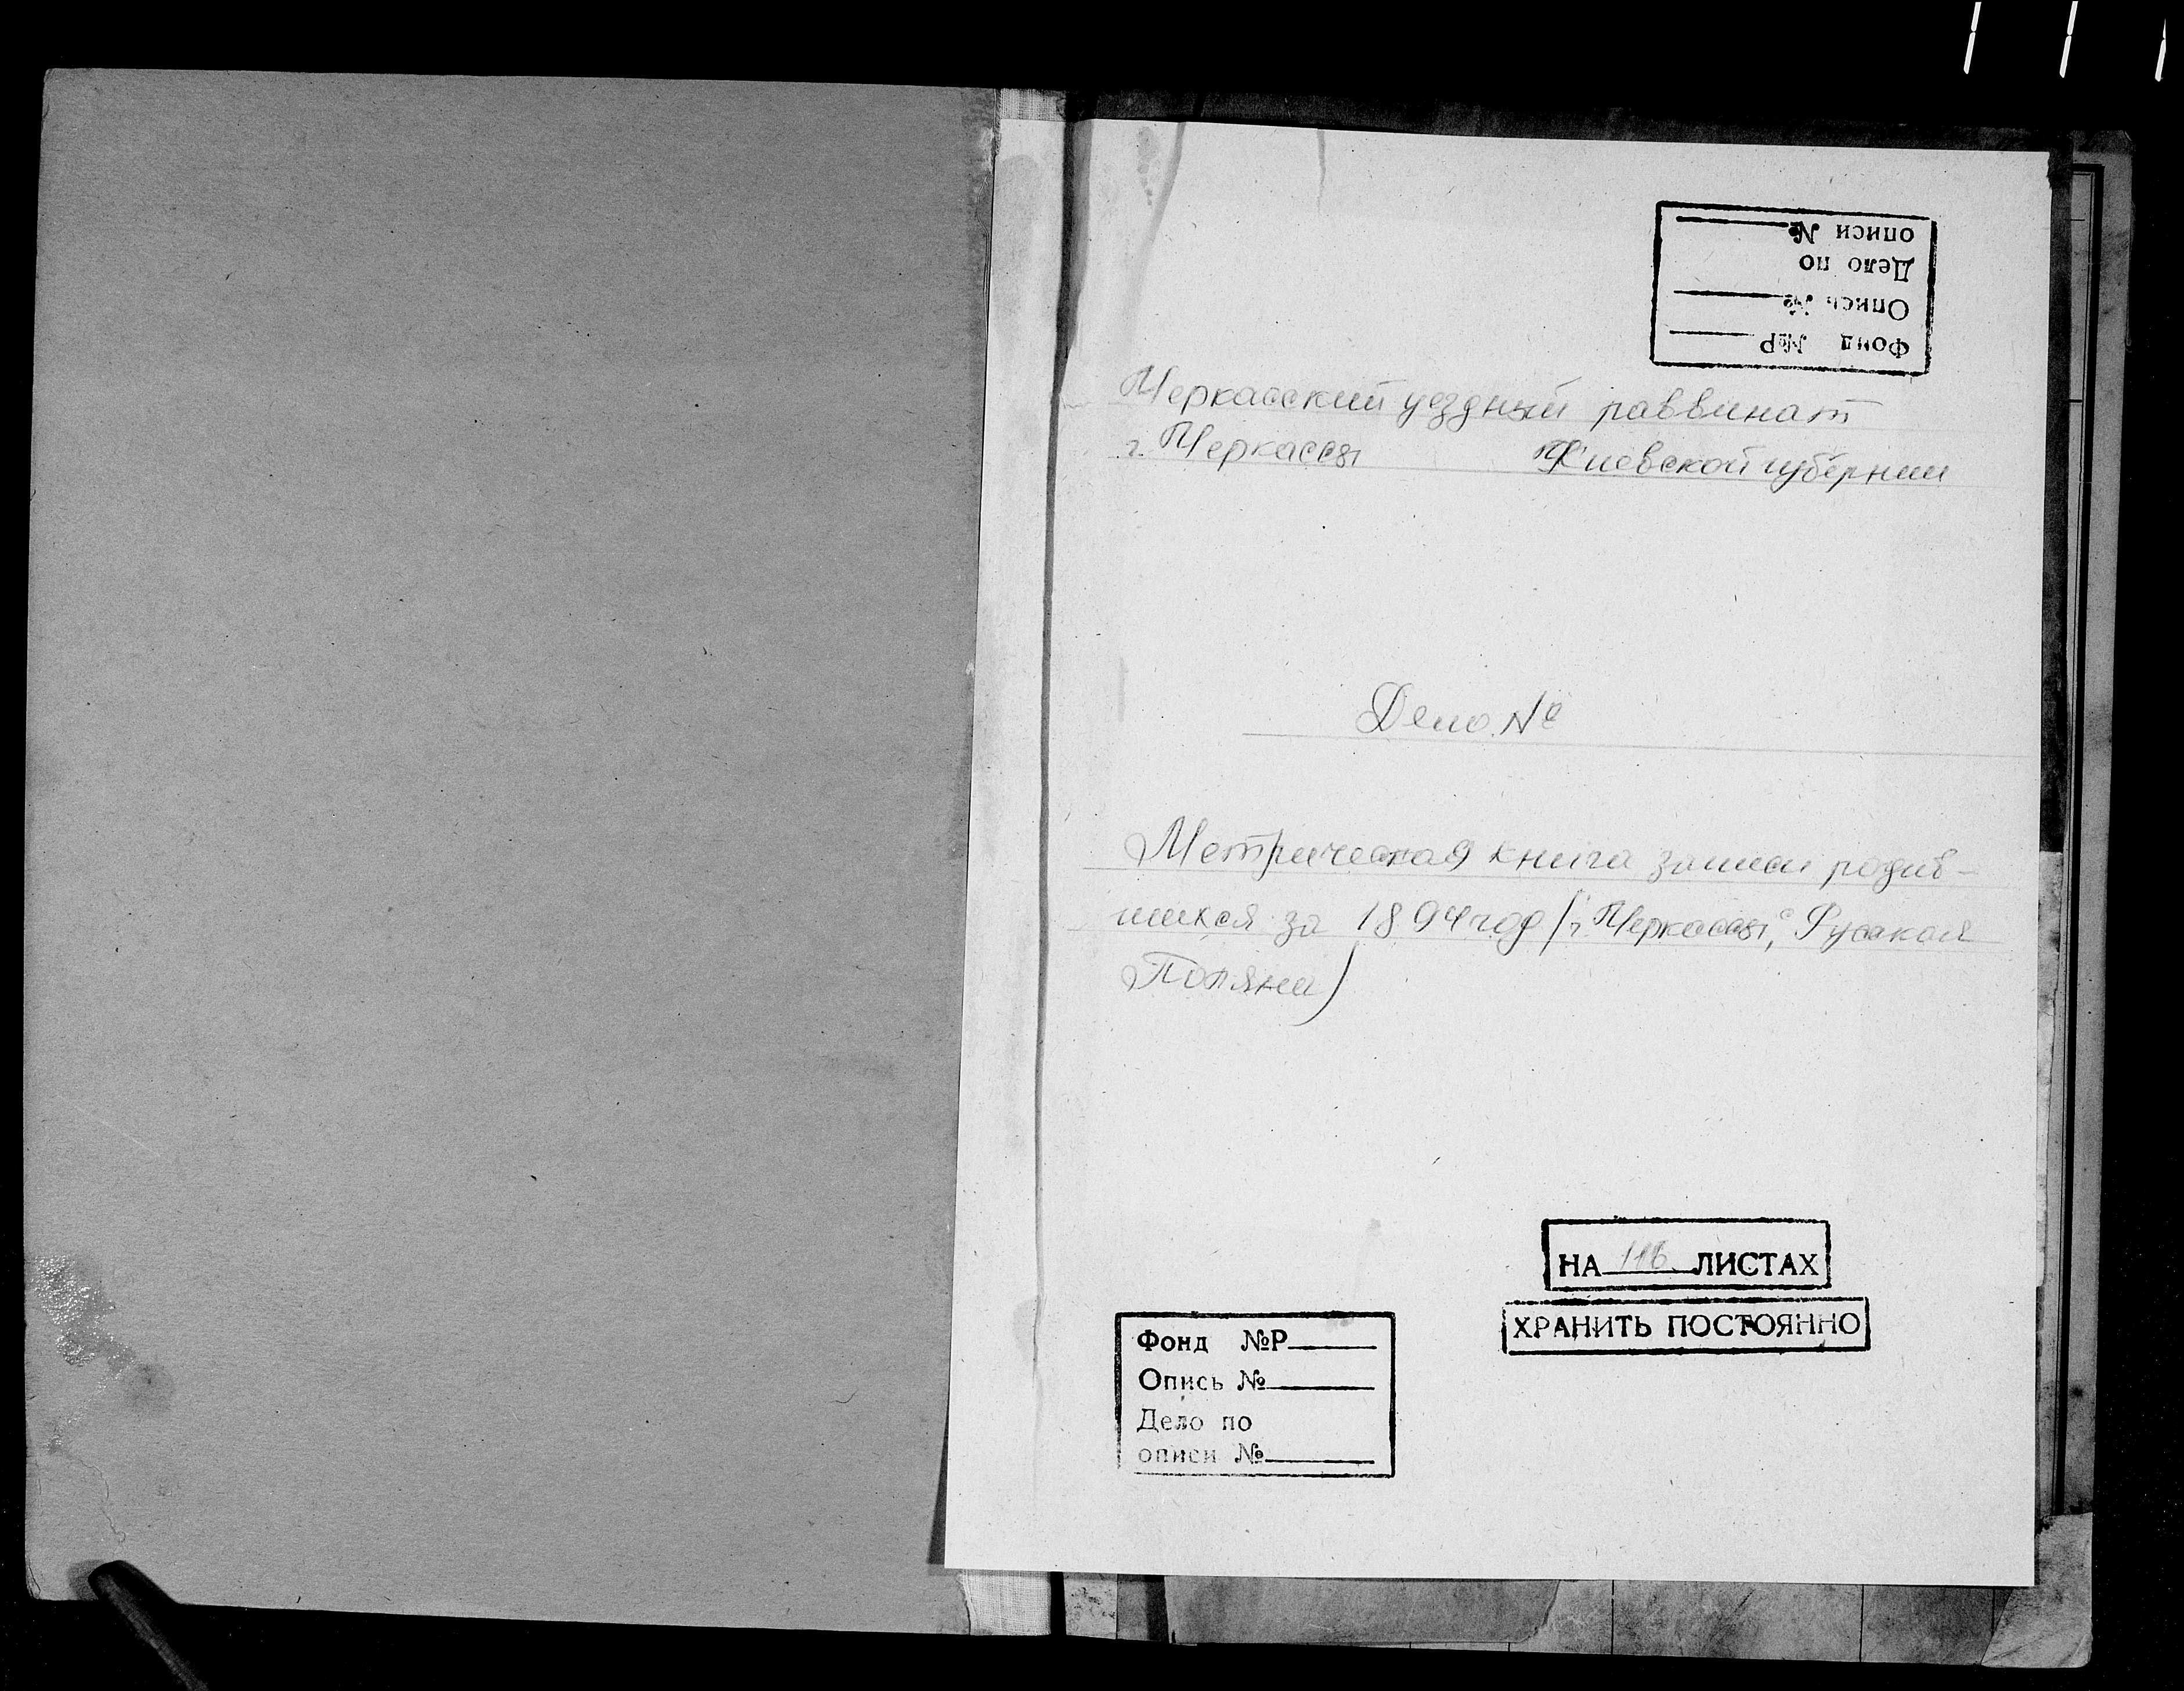 описи №
Дело по
Опись №
Фонд №Р
Черкасский уездный раввинат
г. Черкассы Киевской губернии
Дело №
Метрическая книга записи родив-
шихся за 1894 год (г. Черкассы, с. Русская
Поляна)
НА 116 ЛИСТАХ
ХРАНИТЬ ПОСТОЯННО
Фонд №Р
Опись №
Дело по
описи №